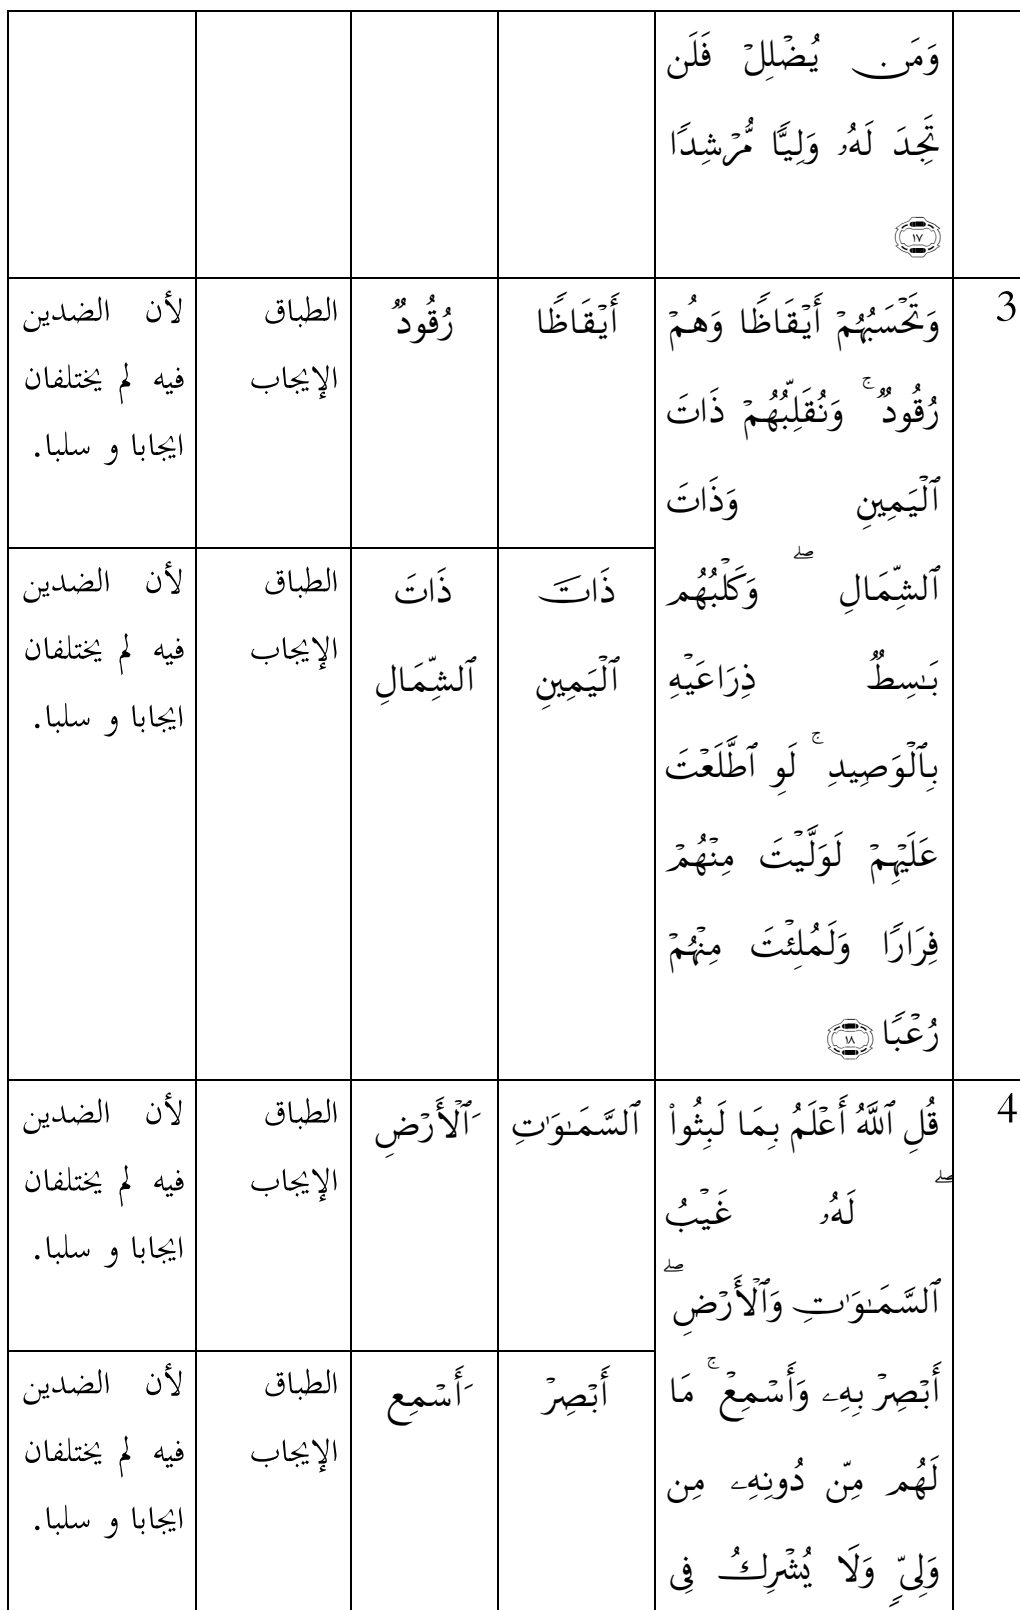 وَمَن يُضْلِلْ فَلَن
تَجِدَ لَهُۥ وَلِيًّا مُّرْشِدًا
١٧
3
وَتَحْسَبُهُمْ أَيْقَاظًا وَهُمْ
رُقُودٌ ۚ وَنُقَلِّبُهُمْ ذَاتَ
ٱلْيَمِينِ وَذَاتَ
ٱلشِّمَالِ ۖ وَكَلْبُهُم
بَـٰسِطٌ ذِرَاعَيْهِ
بِٱلْوَصِيدِ ۚ لَوِ ٱطَّلَعْتَ
عَلَيْهِمْ لَوَلَّيْتَ مِنْهُمْ
فِرَارًا وَلَمُلِئْتَ مِنْهُمْ
رُعْبًا ١٨
أَيْقَاظًا
رُقُودٌ
الطباق
الإيجاب
لأن الضدين
فيه لم يختلفان
ايجابا و سلبا.
ذَاتَ
ٱلْيَمِينِ
ذَاتَ
ٱلشِّمَالِ
الطباق
الإيجاب
لأن الضدين
فيه لم يختلفان
ايجابا و سلبا.
4
قُلِ ٱللَّهُ أَعْلَمُ بِمَا لَبِثُوا۟
ۖ لَهُۥ غَيْبُ
ٱلسَّمَـٰوَٰتِ وَٱلْأَرْضِ ۖ
أَبْصِرْ بِهِۦ وَأَسْمِعْ ۚ مَا
لَهُم مِّن دُونِهِۦ مِن
وَلِىٍّ وَلَا يُشْرِكُ فِى
ٱلسَّمَـٰوَٰتِ
َٱلْأَرْضِ
الطباق
الإيجاب
لأن الضدين
فيه لم يختلفان
ايجابا و سلبا.
أَبْصِرْ
َأَسْمِع
الطباق
الإيجاب
لأن الضدين
فيه لم يختلفان
ايجابا و سلبا.